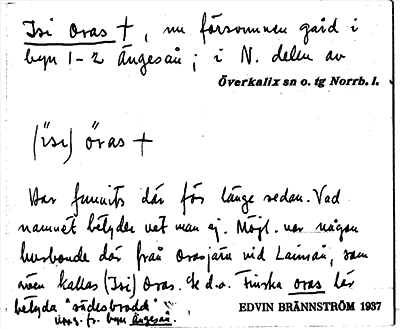 Isi Oras †, nu försvunnen gård i
byn 1-2 Ängeså; i N. delen av
Överkalix sn o. tg Norrb. l.
(ìsi) òras †
Har funnits där för länge sedan. Vad
namnet betyder vet man ej. Möjl. var någon
husbonde där från Orasjärv vid Lainioän, som
även kallas (Isi) Oras. Finska oras lär
betyda "sädesbrodd".
Uppg. fr. byn Ängeså.
EDVIN BRÄNNSTRÖM 1937